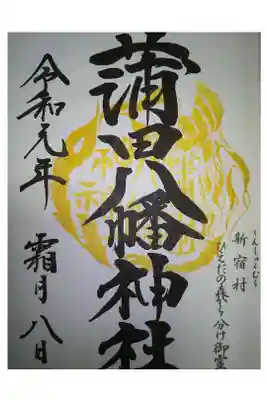 しんしゅくむら
新宿村
ひえだの森より分け御霊
蒲田八幡神社
令和元年 霜月 八日